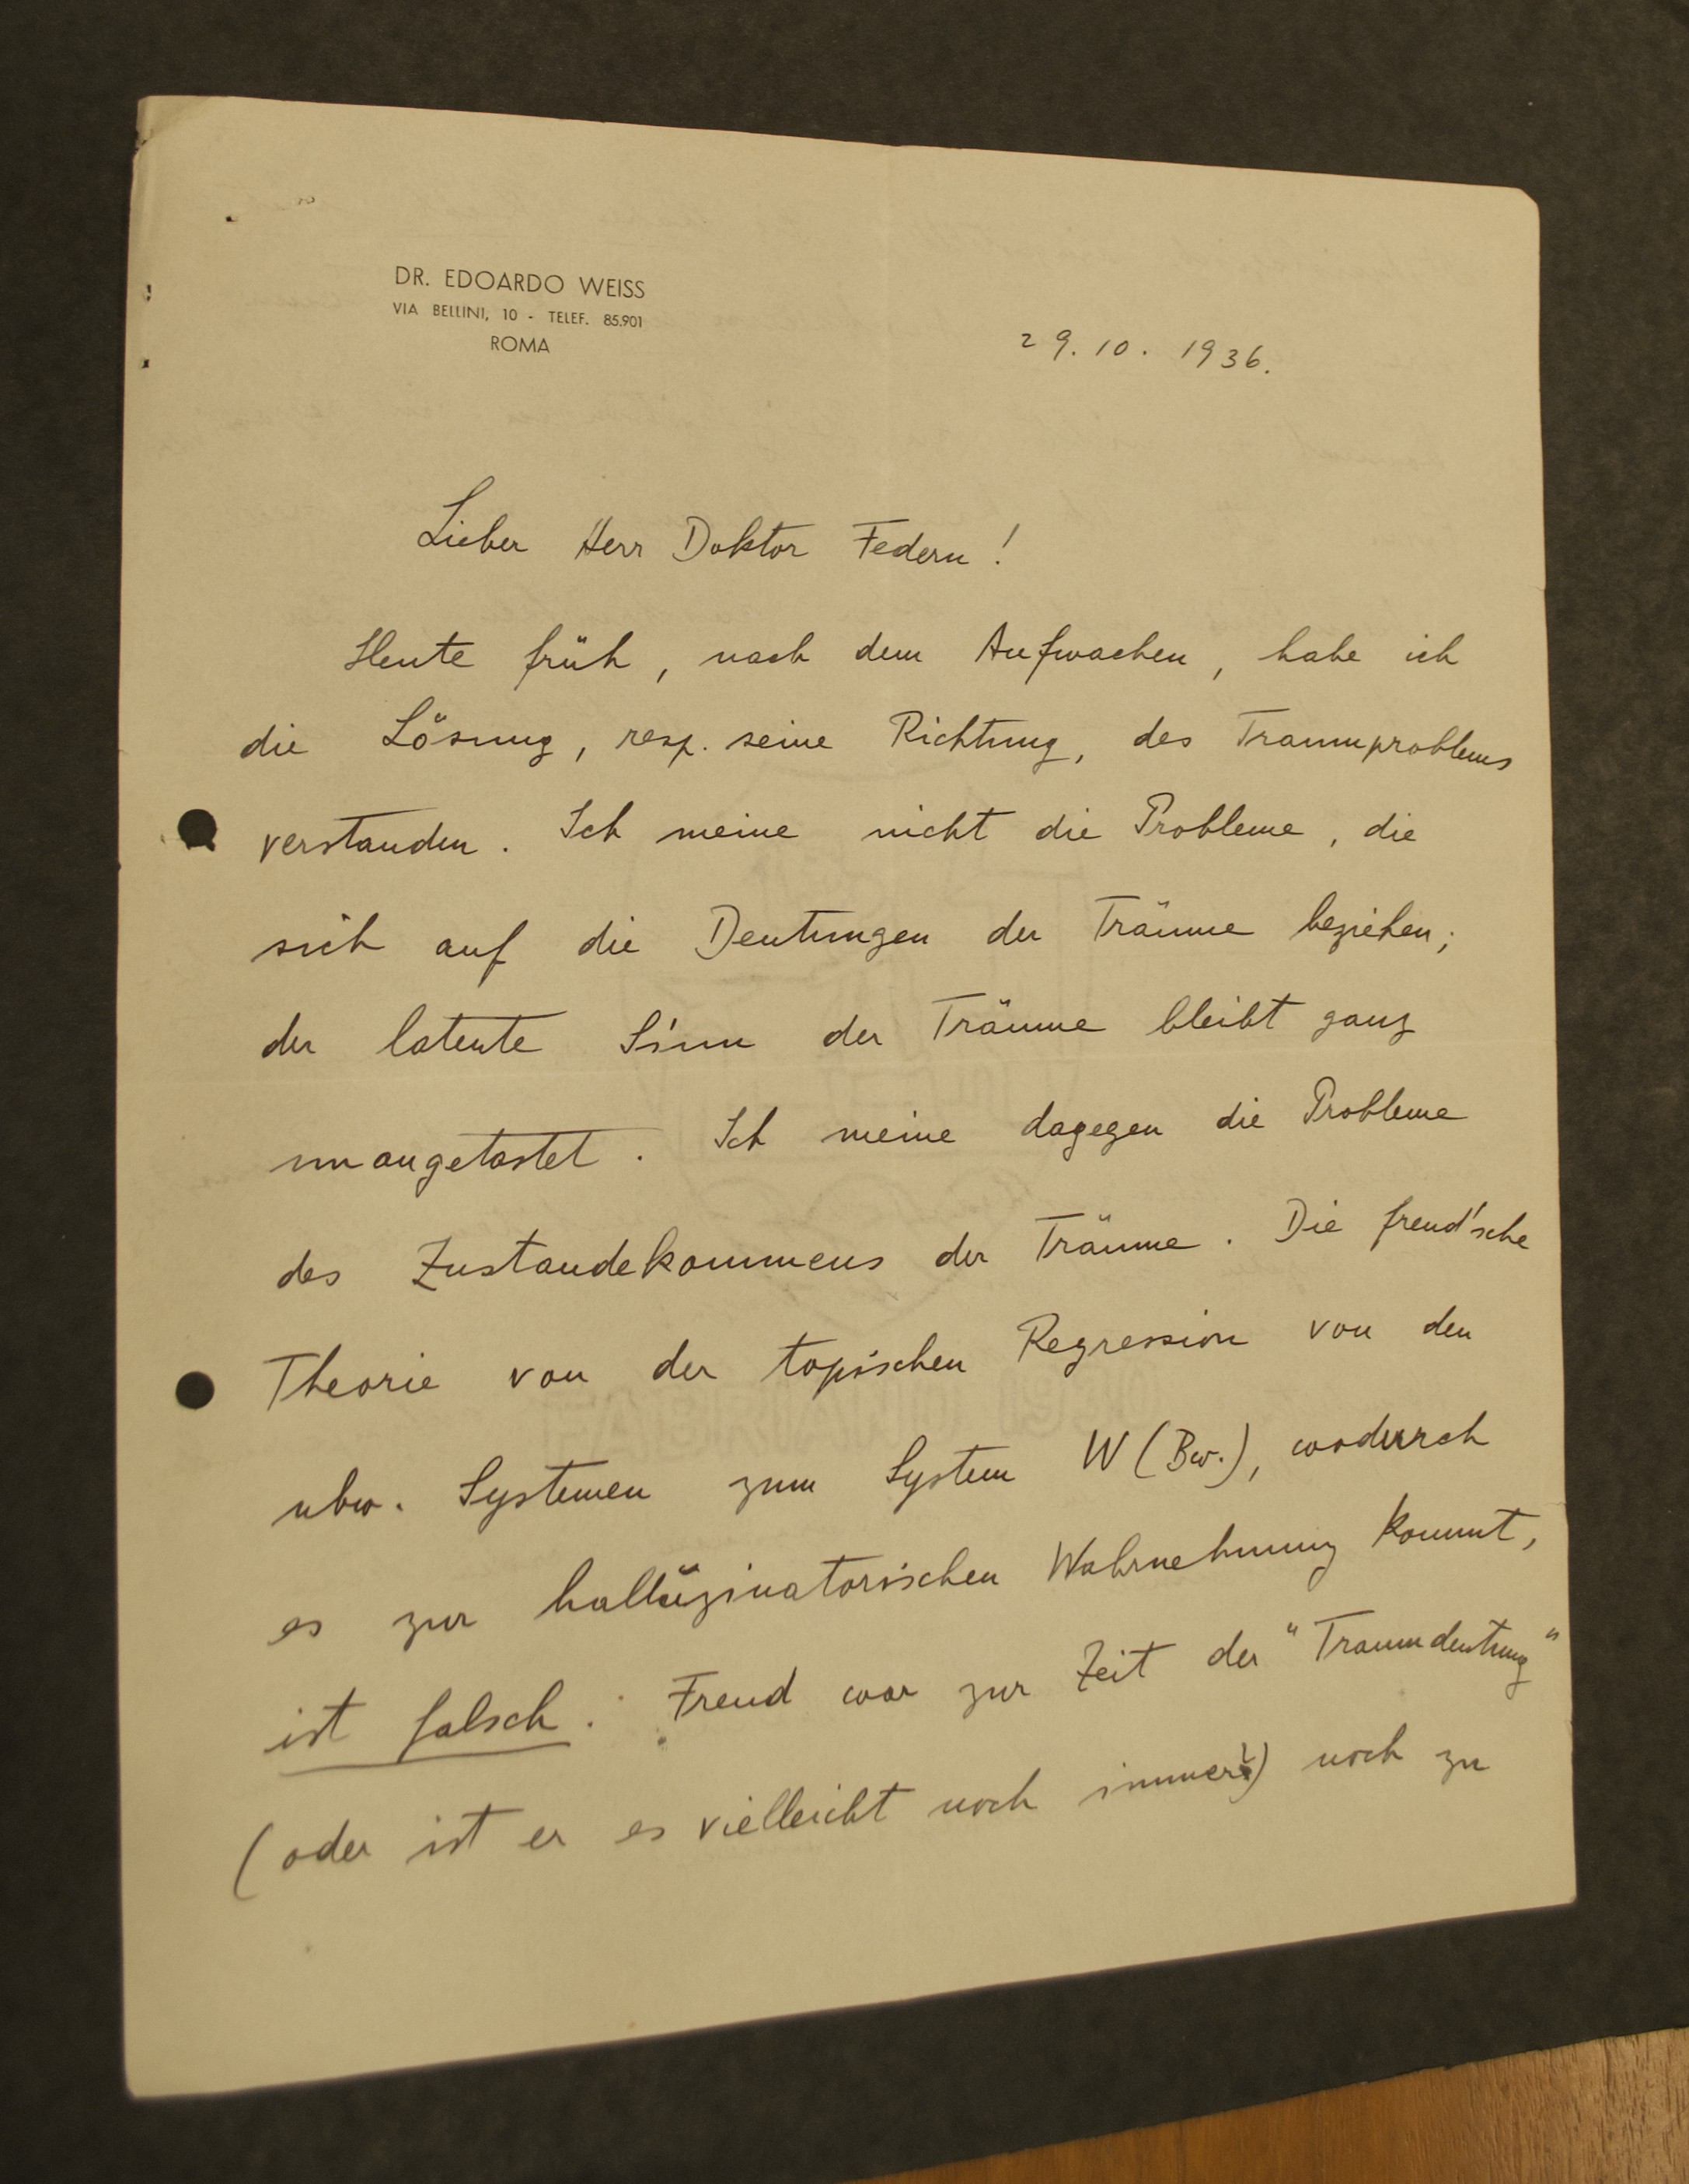 DR. EDOARDO WEISS
VIA BELLINI, 10 - TELEF. 85.901
ROMA
29.10. 1936.
Lieber Herr Doktor Federn!
Heute früh, nach dem Aufwachen, habe ich
die Lösung, resp. seine Richtung, des Traumproblems
verstanden. Ich meine nicht die Probleme, die
sich auf die Deutungen der Träume beziehen;
der latente Sinn der Träume bleibt ganz
unangetastet. Ich meine dagegen die Probleme
des Zustandekommens der Träume. Die freud'sche
Theorie von der topischen Regression von den
ubw. Systemen zum System W (Bw.), wodurch
es zur halluzinatorischen Wahrnehmung kommt,
ist falsch. Freud war zur Zeit der "Traumdeutung"
(oder ist er es vielleicht noch immer?) noch zu